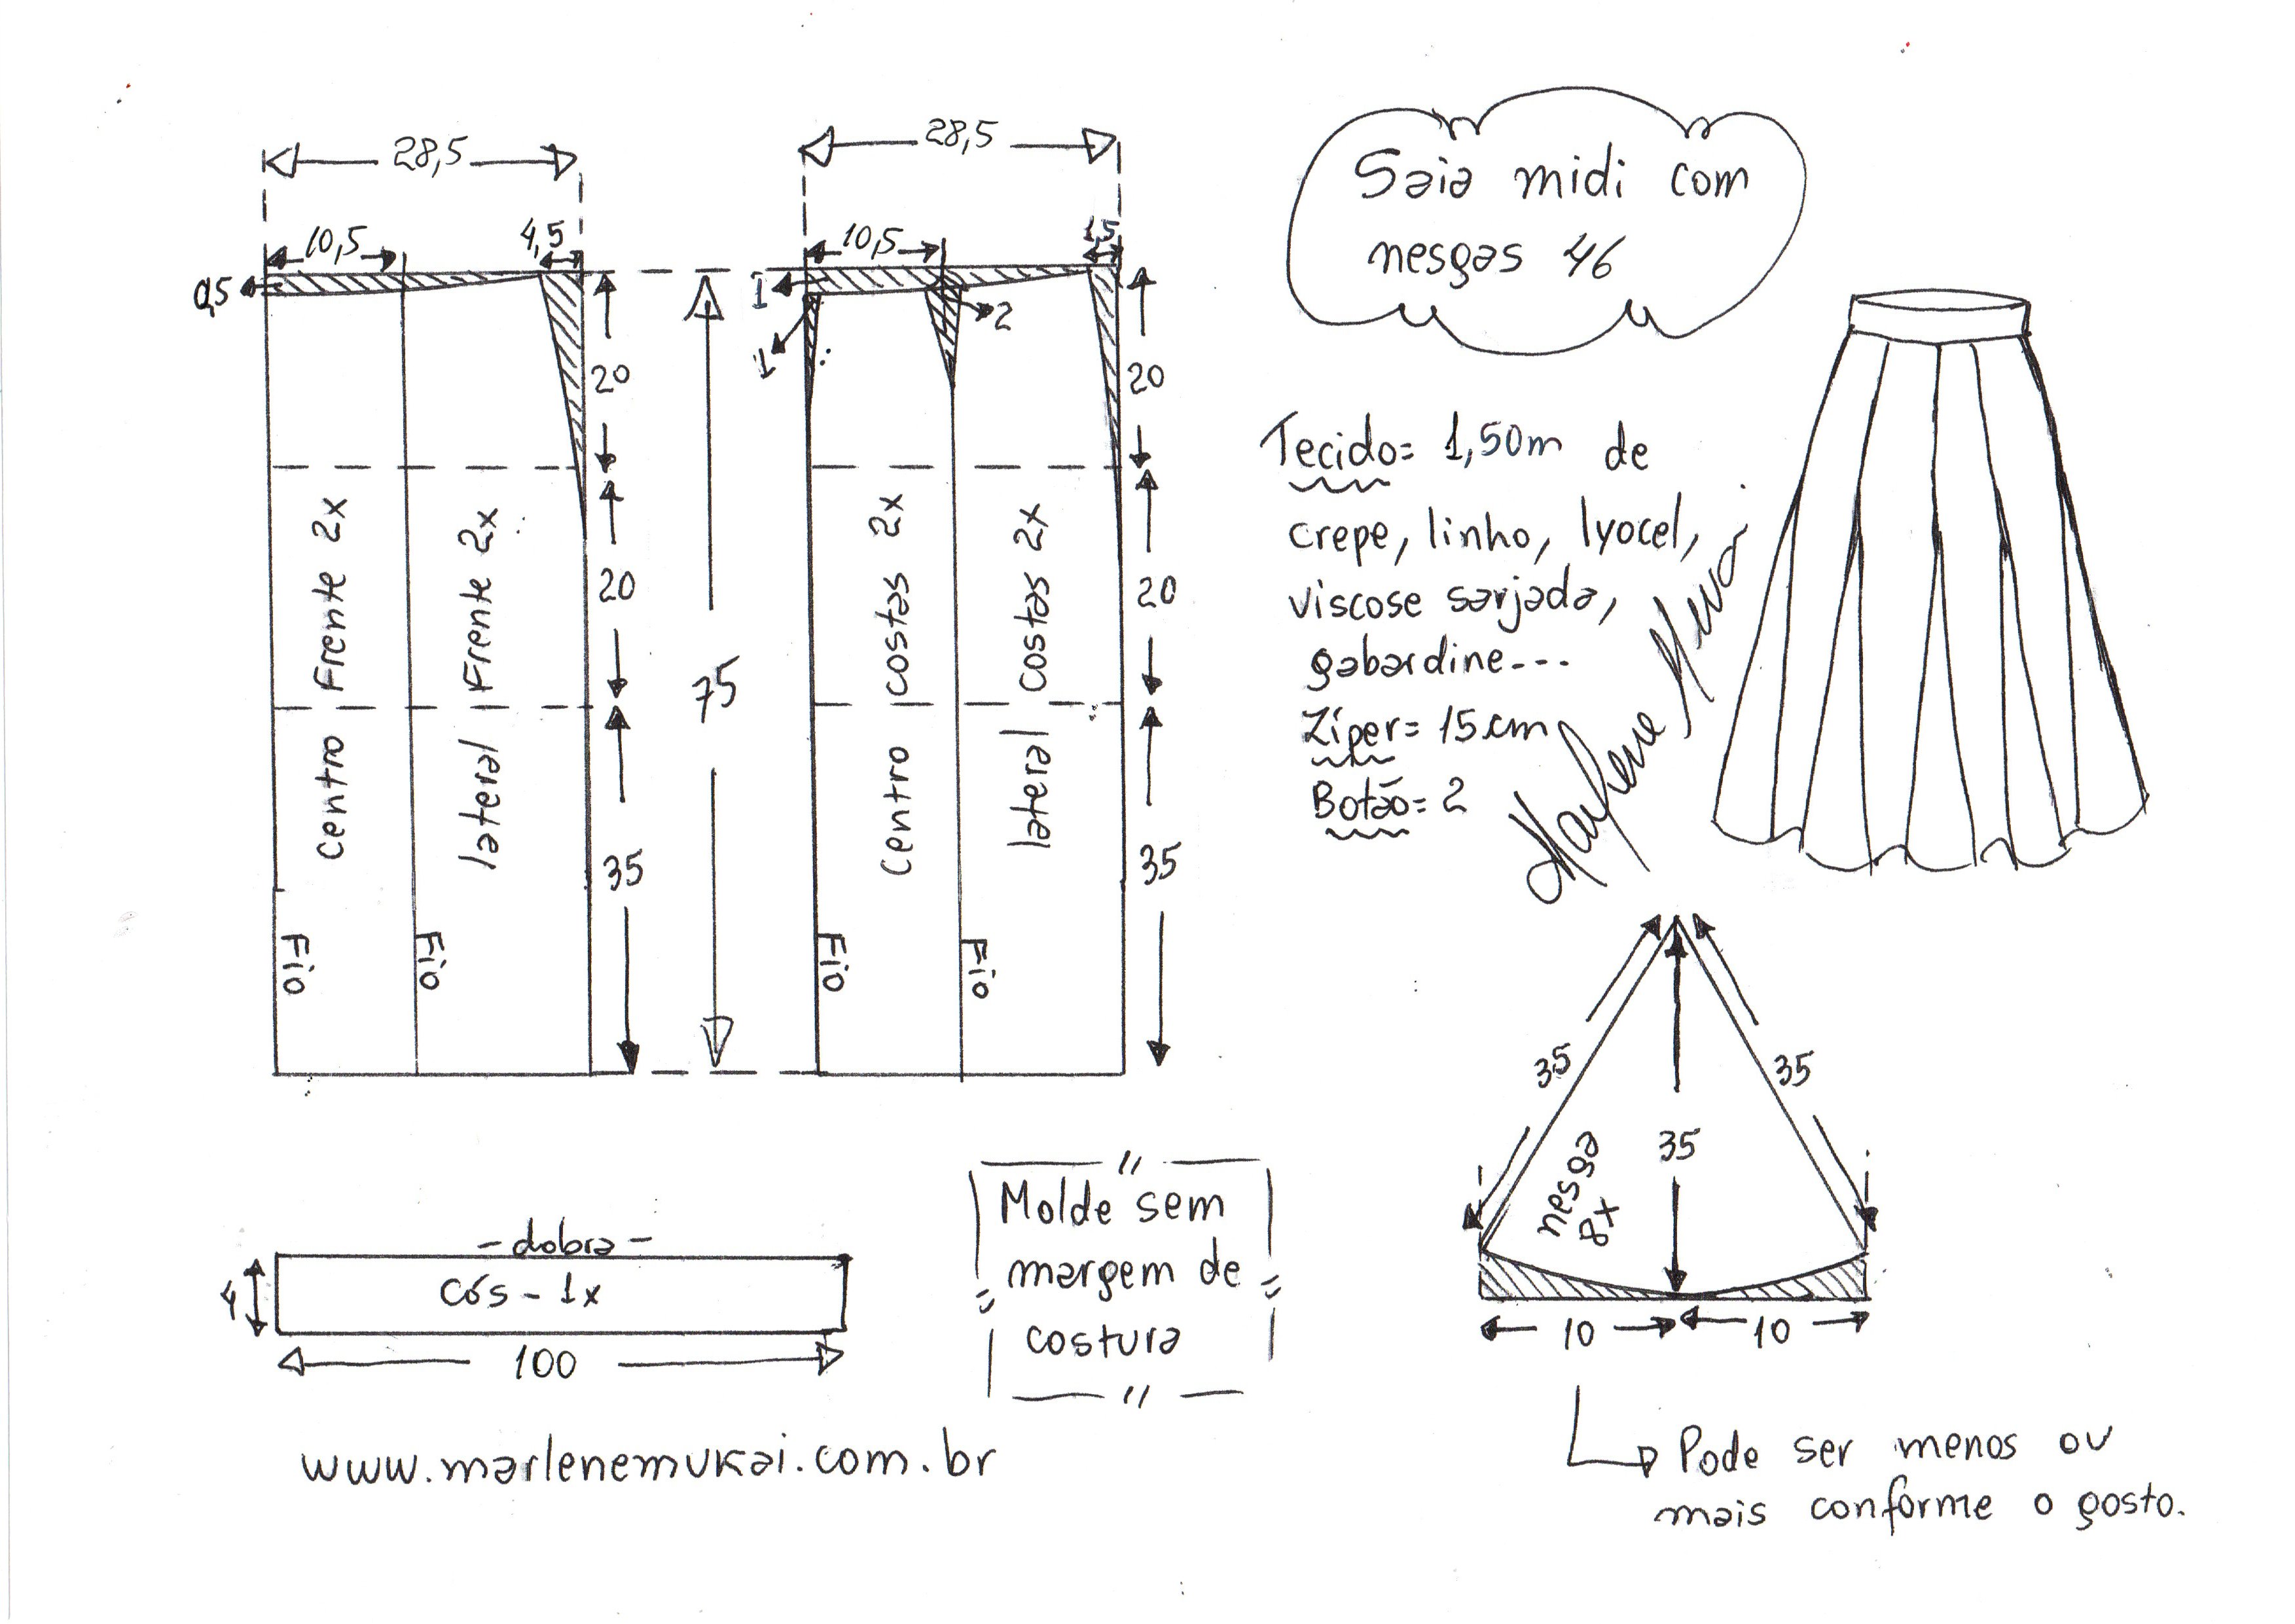 28,5
10,5
4,5
0,5
20
20
35
Centro Frente 2x
lateral Frente 2x
Fio
Fio
75
28,5
10,5
1,5
1
1
2
20
20
35
Centro costas 2x
lateral costas 2x
Fio
Fio
Saia midi com
nesgas 46
Tecido= 1,50m de
crepe, linho, lyocel,
viscose sarjada,
gabardine---
Zíper= 15cm
Botão= 2
Marlene Mukai
35
35
35
nesga
8x
10
10
Pode ser menos ou
mais conforme o gosto.
- dobra -
Cós - 1x
4
100
Molde sem
margem de
costura
www.marlenemukai.com.br